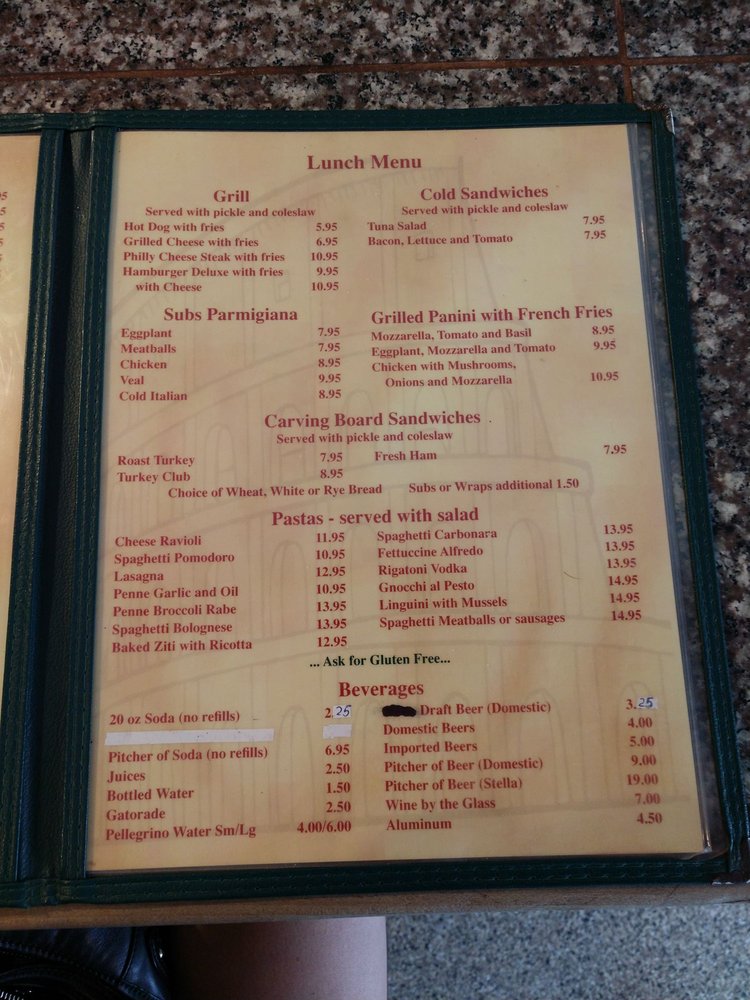 Lunch Menu
Grill
Served with pickle and coleslaw
Hot Dog with fries 5.95
Grilled Cheese with fries 6.95
Philly Cheese Steak with fries 10.95
Hamburger Deluxe with fries 9.95
with Cheese 10.95
Cold Sandwiches
Served with pickle and coleslaw
Tuna Salad 7.95
Bacon, Lettuce and Tomato 7.95
Subs Parmigiana
Eggplant 7.95
Meatballs 7.95
Chicken 8.95
Veal 9.95
Cold Italian 8.95
Grilled Panini with French Fries
Mozzarella, Tomato and Basil 8.95
Eggplant, Mozzarella and Tomato 9.95
Chicken with Mushrooms,
Onions and Mozzarella 10.95
Carving Board Sandwiches
Served with pickle and coleslaw
Roast Turkey 7.95
Turkey Club 8.95
Fresh Ham 7.95
Choice of Wheat, White or Rye Bread Subs or Wraps additional 1.50
Pastas - served with salad
Cheese Ravioli 11.95
Spaghetti Pomodoro 10.95
Lasagna 12.95
Penne Garlic and Oil 10.95
Penne Broccoli Rabe 13.95
Spaghetti Bolognese 13.95
Baked Ziti with Ricotta 12.95
Spaghetti Carbonara 13.95
Fettuccine Alfredo 13.95
Rigatoni Vodka 13.95
Gnocchi al Pesto 14.95
Linguini with Mussels 14.95
Spaghetti Meatballs or sausages 14.95
... Ask for Gluten Free...
Beverages
20 oz Soda (no refills) 2.25
Pitcher of Soda (no refills) 6.95
Juices 2.50
Bottled Water 1.50
Gatorade 2.50
Pellegrino Water Sm/Lg 4.00/6.00
Draft Beer (Domestic) 3.25
Domestic Beers 4.00
Imported Beers 5.00
Pitcher of Beer (Domestic) 9.00
Pitcher of Beer (Stella) 19.00
Wine by the Glass 7.00
Aluminum 4.50